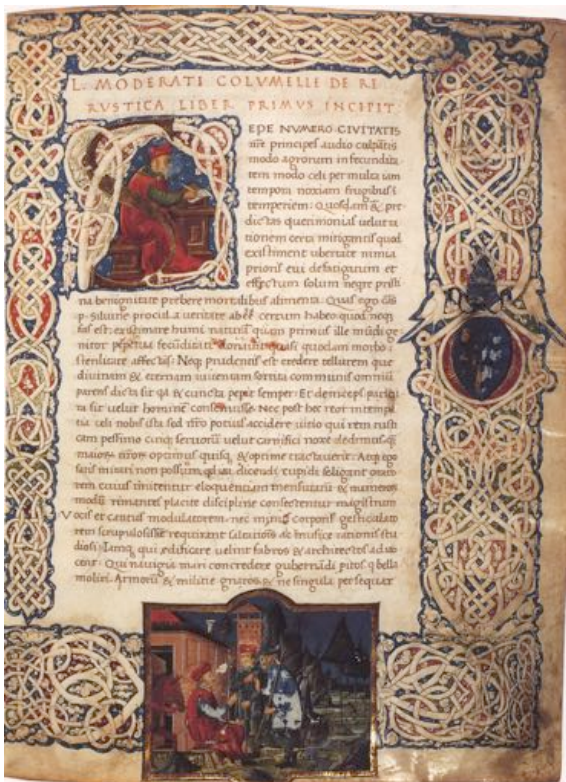 L. MODERATI COLVMELLE DE RE
RVSTICA LIBER PRIMVS INCIPIT:
EPE NVMERO CIVITATIS
principes audio culpatis
modo agrorum infecundita
tem modo celi per multa iam
tempora noxiam frugibus i
temperiem: Quosdam &
dictas querimonias velut ra
tionem certa mitigantis quod
existiment ubertate nimia
prioris eui defatigatum et
effectum solum neqre pristi
na benignitate prebere mortalibus alimenta. Quas ego
p. siluine procul a ueritate certum habeo quod neqз
fas est: existimare humi naturam quam primus ille mudi ge
nitor fecunditate donauit quasi quodam morbo
sterilitate affectas: Neqз prudentis est credere tellurem que
diuinam & eternam iuuentam sortita communis omniu
parens dicta sit & cuncta semper: Et deinceps
ta sit uelut homine consenuisse. Nec post hec reor intempe
ria celi nobis ista sed potius accidere uitio qui rem rusti
cam pessimo cuiqз seruorum uelut carnifici noxe dedimus
maiorum optimus quisqз & optime tractauerit. Atqз ego
satis mirari non possum dicendi cupidi seligant orato
rem cuius imitentur eloquentiam mensurarum & numeros
modum rimantes placite discipline consectentur magistrum
Vocis et cantus modulatorem nec minus corporis gesticulato
rem scrupulosisse requirant saltationis ac musice rationis stu
diosi: Iamqз qui edificare uelint fabros & architectos aduo
cent: Qui nauigia mari concredere gubernadi qui bella
moliri. Armorum & militie gnaros & ne singula persequar